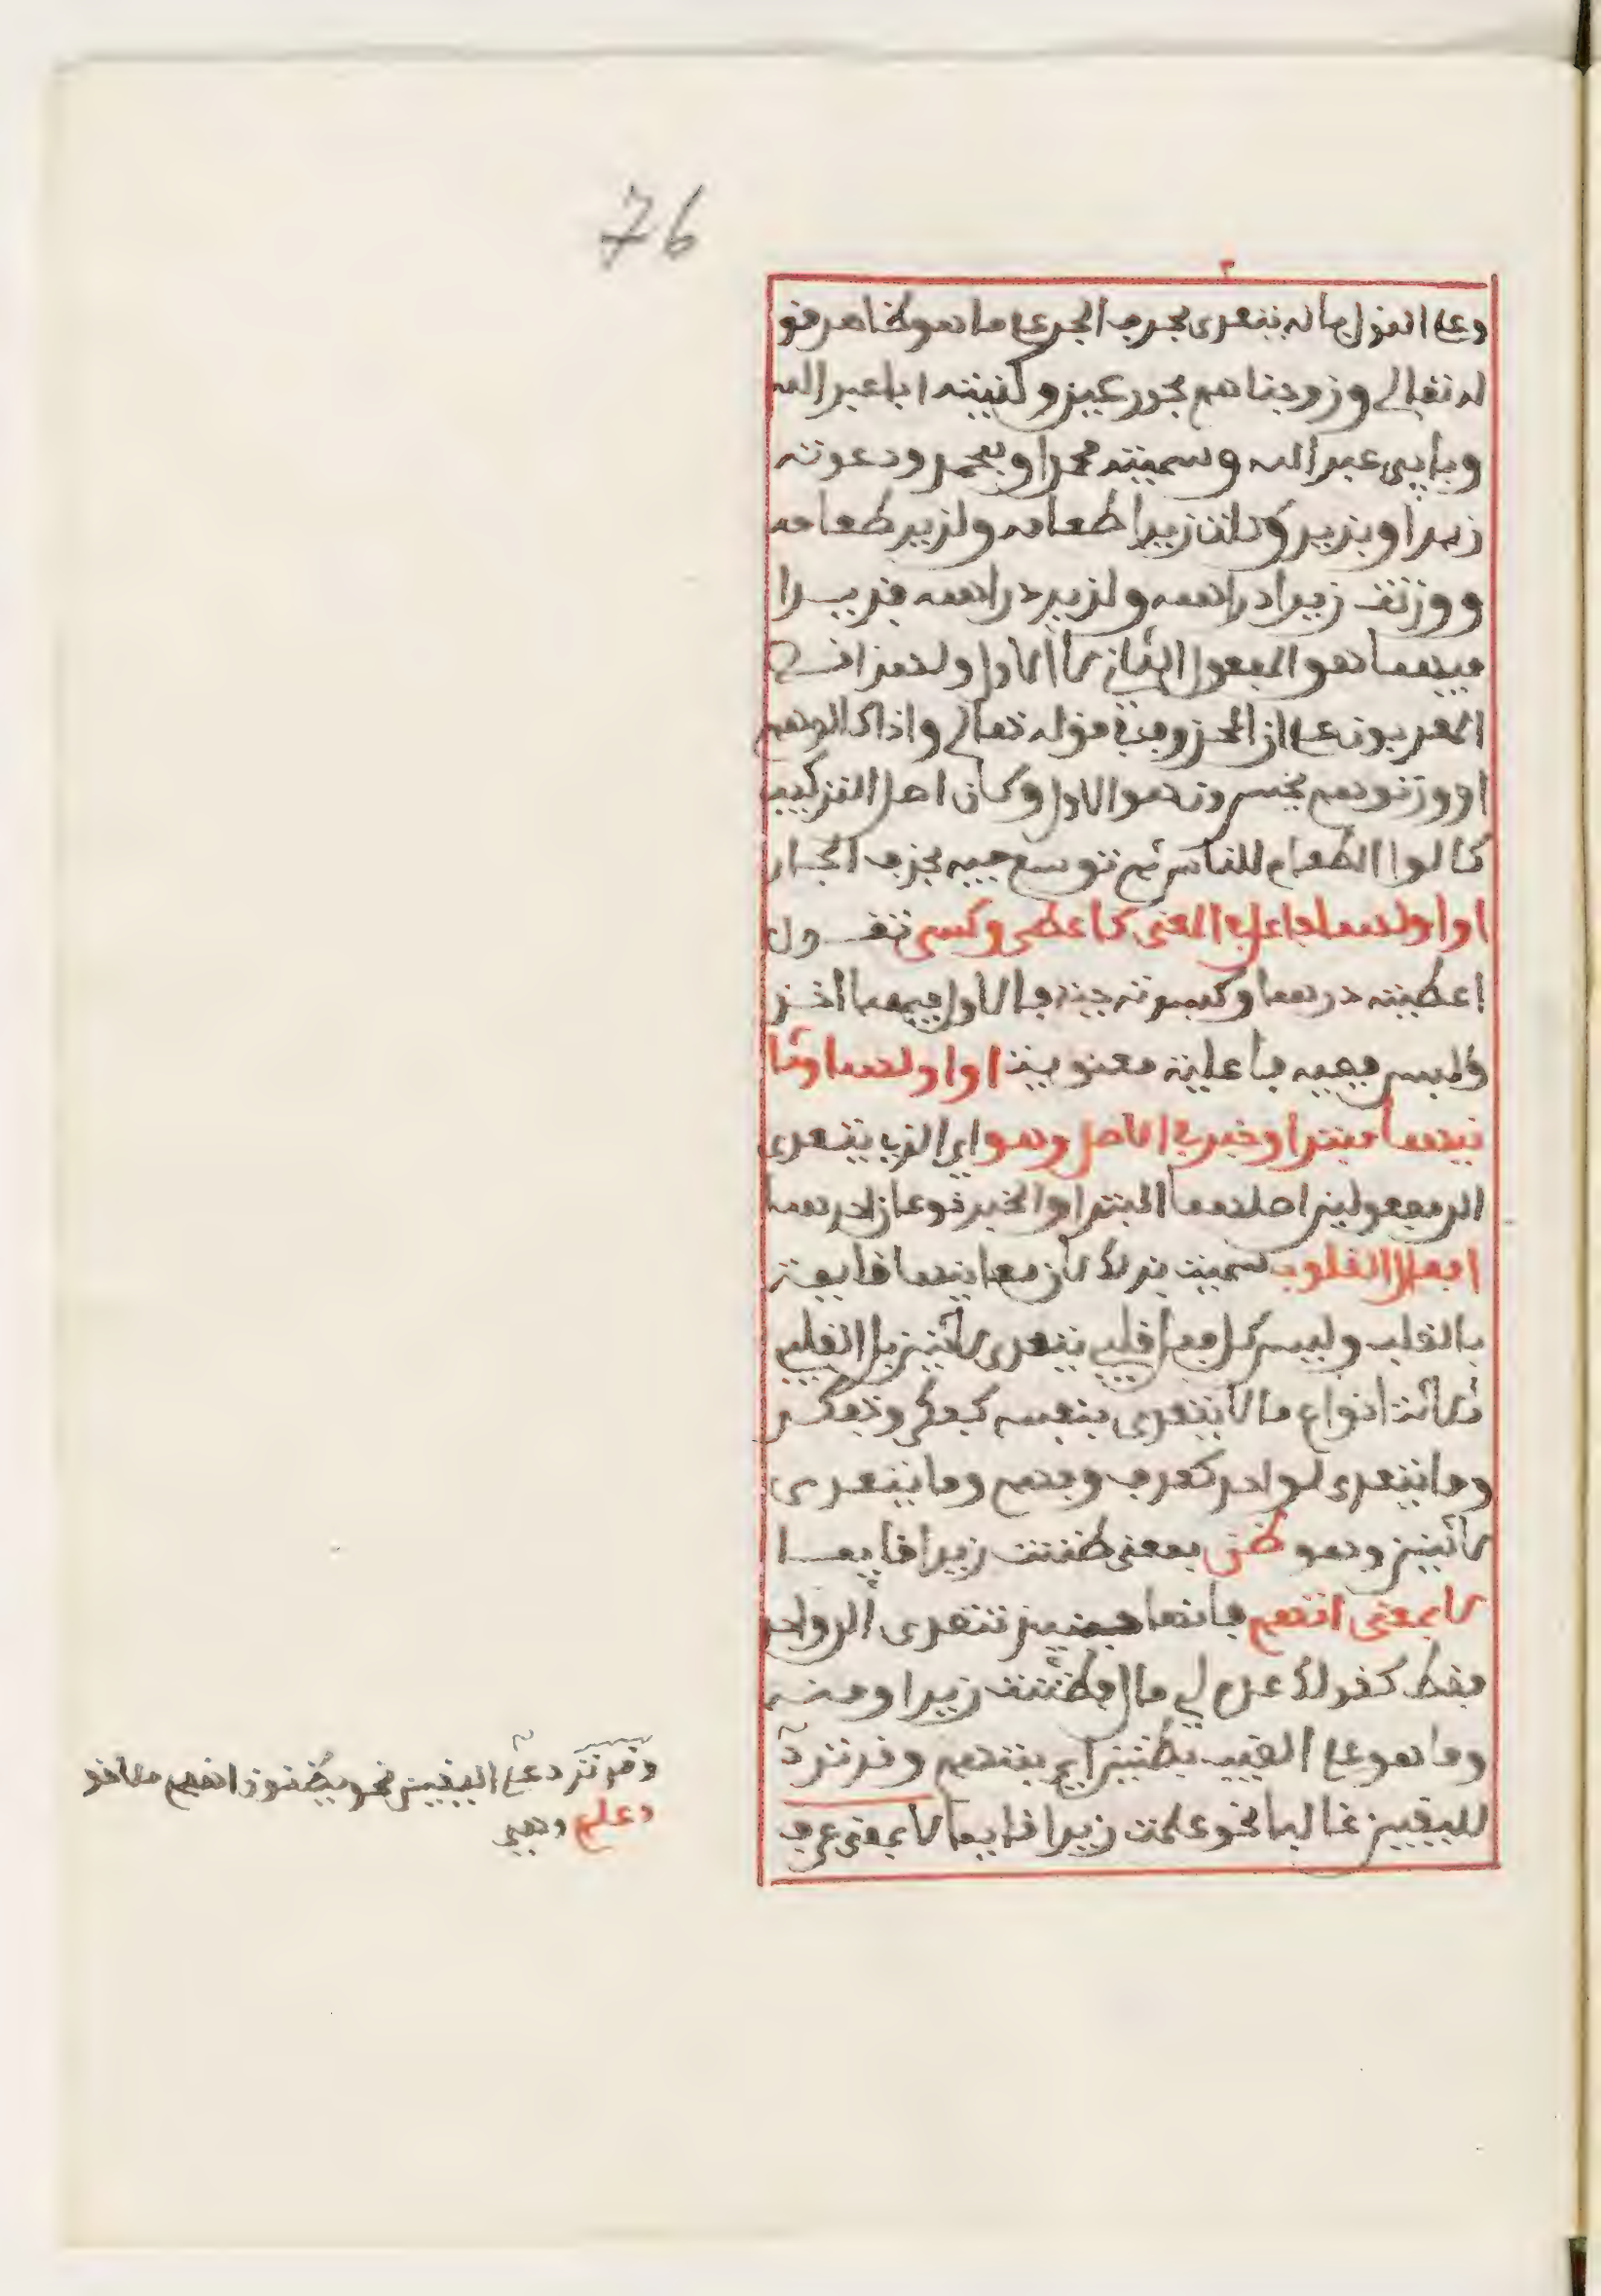 76
وعلى القول بانه يتعدى بحرف الجر على ما هو ظاهر قو
له تعالى وزوجناهم بحور عين وكنيته ابا عبد الله
وبابي عبد الله وسميته محمدا وبمحمد ودعوته
زيدا وبزيد وكلت زيدا طعامه ولزيد طعامه
ووزنت زيدا دراهمه ولزيد دراهمه فزيدا
فيهما هو المفعول الثاني لا الاول ولهذا
المعربون على ان المحذوف في قوله تعالى واذا كالوهم
او وزنوهم يخسرون هو الاول وكان اصل التركيب
كالوا الطعام للناس ثم توسع فيه بحذف الجار
او اولهما فاعل في المعنى كاعطى وكسى تقول
اعطيته درهما وكسوته جبة فالاول فيهما اخذ
ولابس ففيه فاعلية معنوية او اولهما وثا
نيهما مبتدا وخبر في الاصل وهو اي الذي يتعدى
الى مفعولين اصلهما المبتدا والخبر نوعان احدهما
افعال القلوب سميت بذلك لان معانيها قايمة
بالقلب وليس كل فعل قلبي يتعدى لاثنين بل القلبي
ثلاثة انواع ما لا يتعدى بنفسه كفكر وتفكر
وما يتعدى لواحد كعرف وفهم وما يتعدى
لاثنين وهو ظن بمعنى ظننت زيدا قايما
لا بمعنى اتهم فانها حينئذ تتعدى الى واحد
فقط كقولك عدم لي مال فظننت زيدا ومنه
وما هو على الغيب بظنين اي بمتهم وقد ترد
لليقين غالبا نحو علمت زيدا قايما لا بمعنى عرف
وقد ترد على اليقين نحو يظنون انهم ملاقو
وعلم وهي